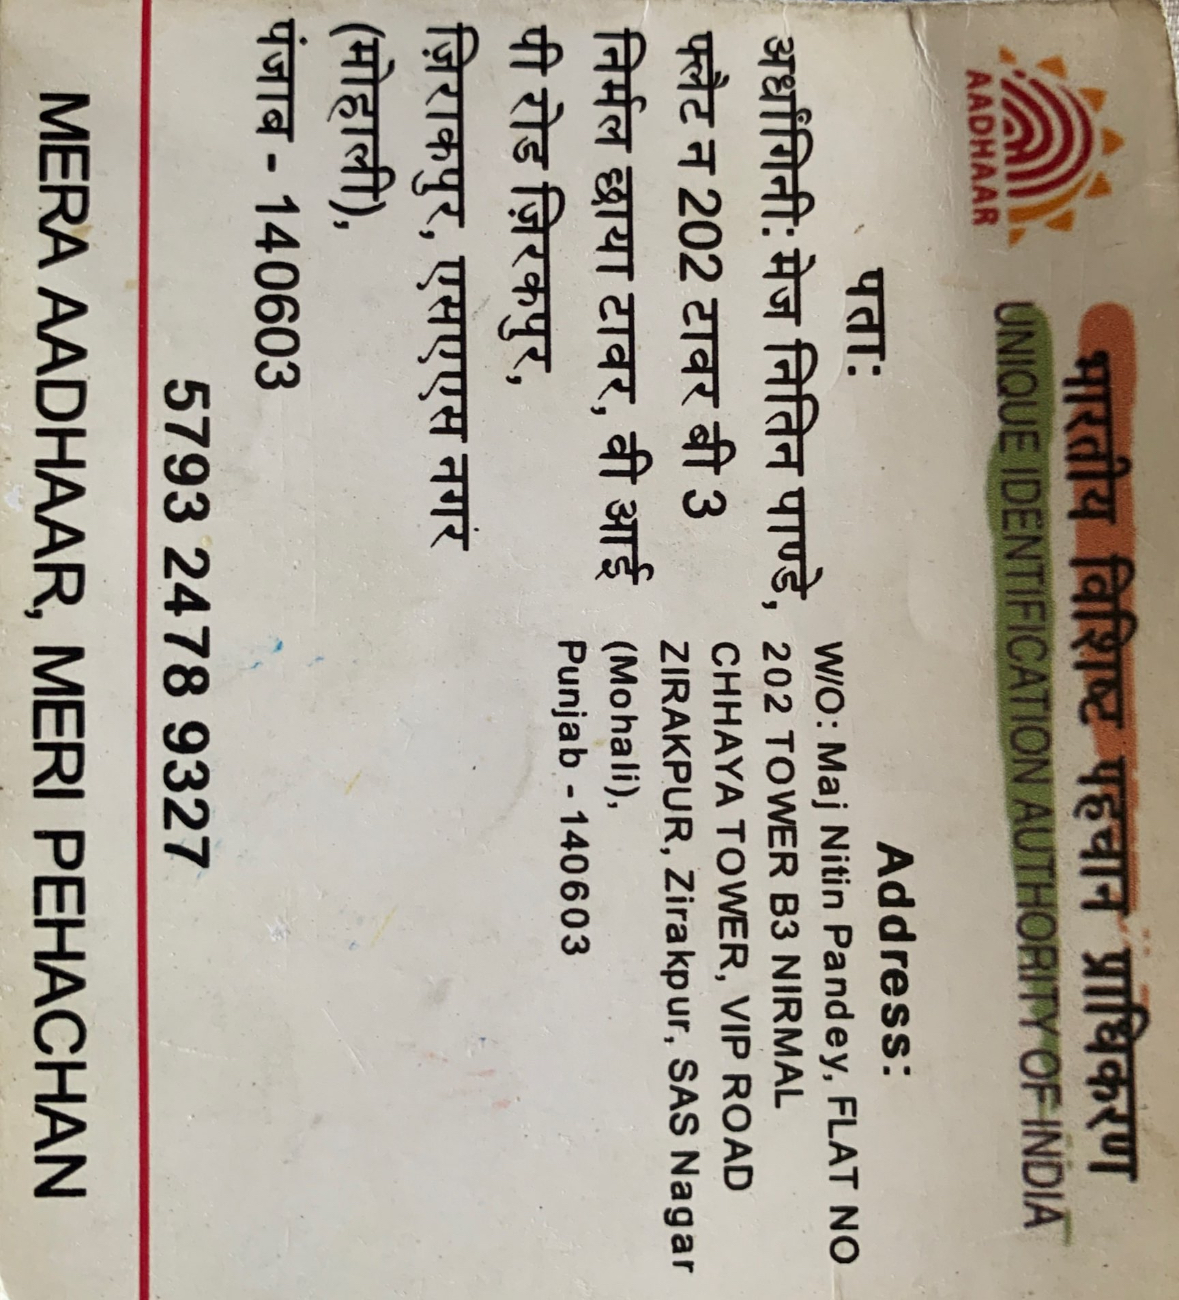 भारतीय विशिष्ट पहचान प्राधिकरण
UNIQUE IDENTIFICATION AUTHORITY OF INDIA
AADHAAR
पता:
अर्धांगिनी: मेज नितिन पाण्डे,
फ्लैट न 202 टावर बी 3
निर्मल छाया टावर, वी आई
पी रोड ज़िरकपुर,
ज़िराकपुर, एसएएस नगर
(मोहाली),
पंजाब - 140603
Address:
W/O: Maj Nitin Pandey, FLAT NO
202 TOWER B3 NIRMAL
CHHAYA TOWER, VIP ROAD
ZIRAKPUR, Zirakpur, SAS Nagar
(Mohali),
Punjab - 140603
5793 2478 9327
MERA AADHAAR, MERI PEHACHAN